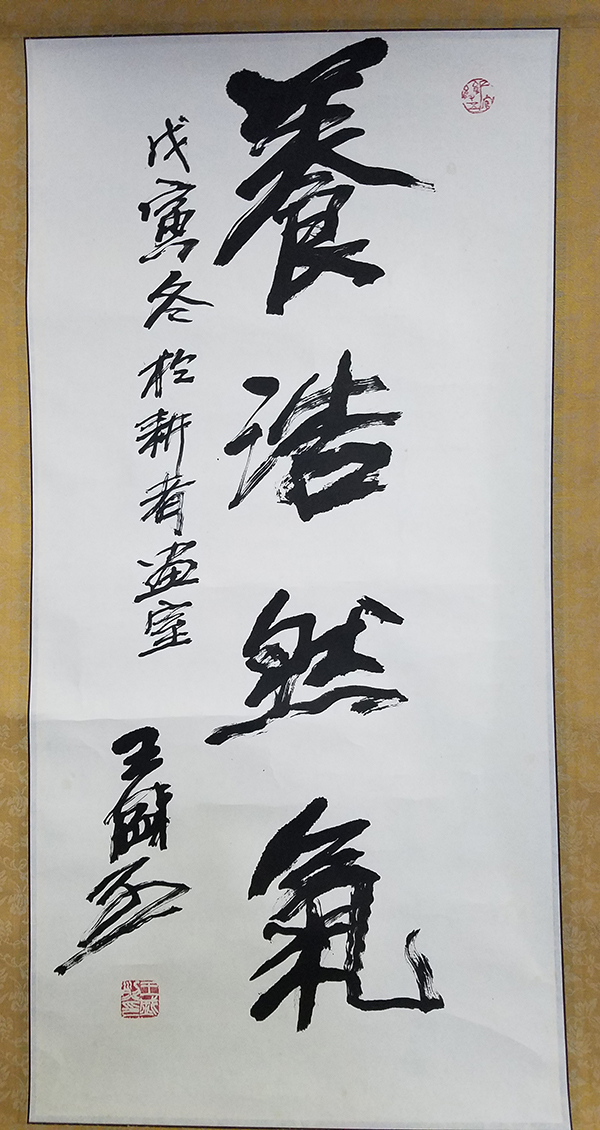 養浩然氣
戊寅冬於耕者画室
王盛烈